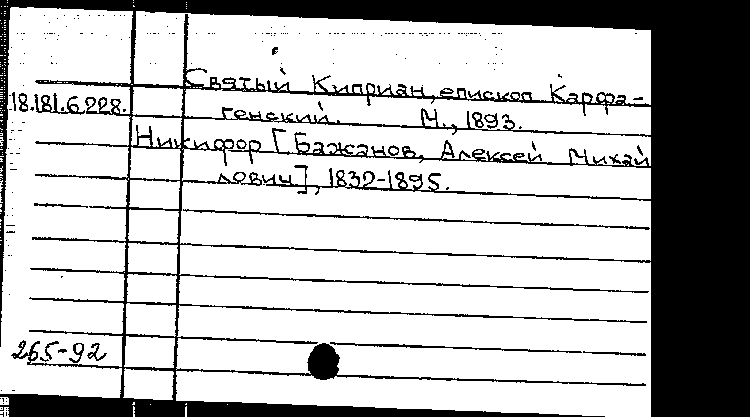 Святый Киприан, епископ Карфа-
18.181.6.228. генский. М., 1893.
Никифор [Бажанов, Алексей Михай
лович], 1832-1895.
265-92